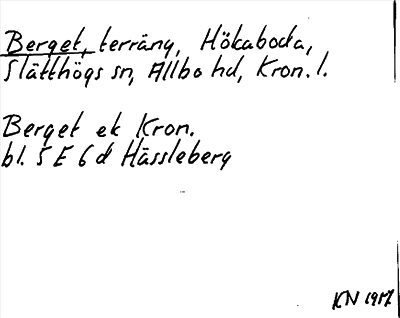 Berget, terräng, Hökaboda,
Slätthögs sn, Allbo hd, Kron. l.
Berget ek Kron.
bl. 5 E 6 d Hässleberg
KN